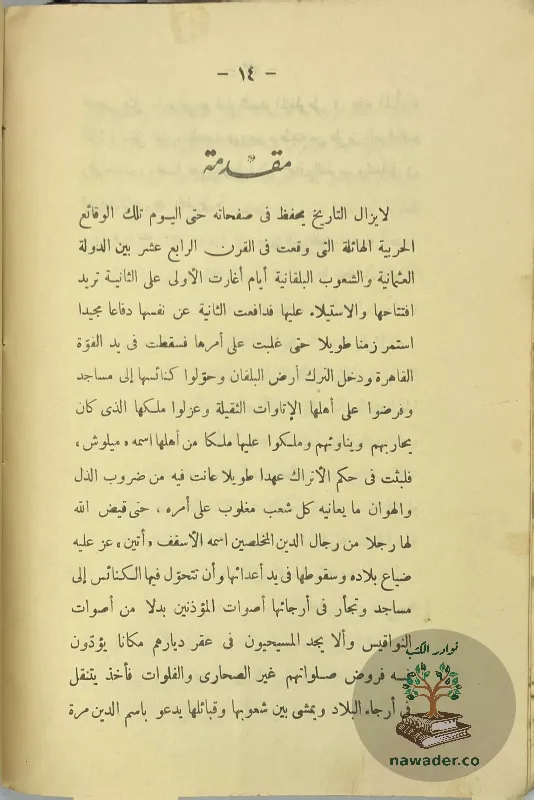 - ١٤ -
مقدمة
لايزال التاريخ يحفظ فى صفحاته حتى اليوم تلك الوقائع
الحربية الهائلة التى وقعت فى القرن الرابع عشر بين الدولة
العثمانية والشعوب البلقانية أيام أغارت الأولى على الثانية تريد
افتتاحها والاستيلاء عليها فدافعت الثانية عن نفسها دفاعا مجيدا
استمر زمنا طويلا حتى غلبت على أمرها فسقطت فى يد القوّة
القاهرة ودخل الترك أرض البلقان وحوّلوا كنائسها إلى مساجد
وفرضوا على أهلها الإتاوات الثقيلة وعزلوا ملكها الذى كان
يحاربهم ويناوئهم وملكوا عليها ملكا من أهلها اسمه «ميلوش»
فلبثت فى حكم الأتراك عهدا طويلا عانت فيه من ضروب الذل
والهوان ما يعانيه كل شعب مغلوب على أمره ، حتى قيض الله
لها رجلا من رجال الدين المخلصين اسمه الأسقف «أتين» عز عليه
ضياع بلاده وسقوطها فى يد أعدائها وأن تتحوّل فيها الكنائس إلى
مساجد وتجأر فى أرجائها أصوات المؤذنين بدلا من أصوات
النواقيس وألا يجد المسيحيون فى عقر ديارهم مكانا يؤدّون
فيه فروض صلواتهم غير الصحارى والفلوات فأخذ يتنقل
فى أرجاء البلاد ويمشى بين شعوبها وقبائلها يدعو باسم الدين مرة
نوادر الكتب
nawader.co